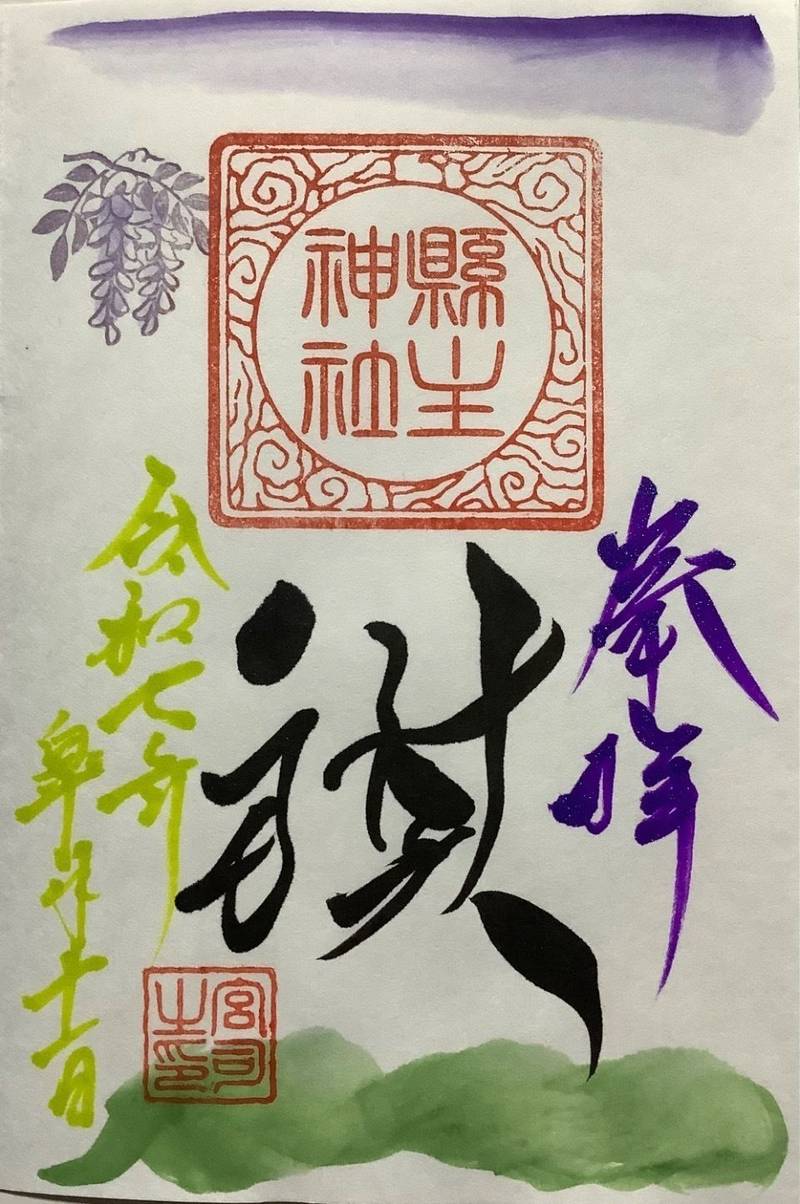 奉拝
縣主
神社
令和七年
皐月十一日
宮司
之印